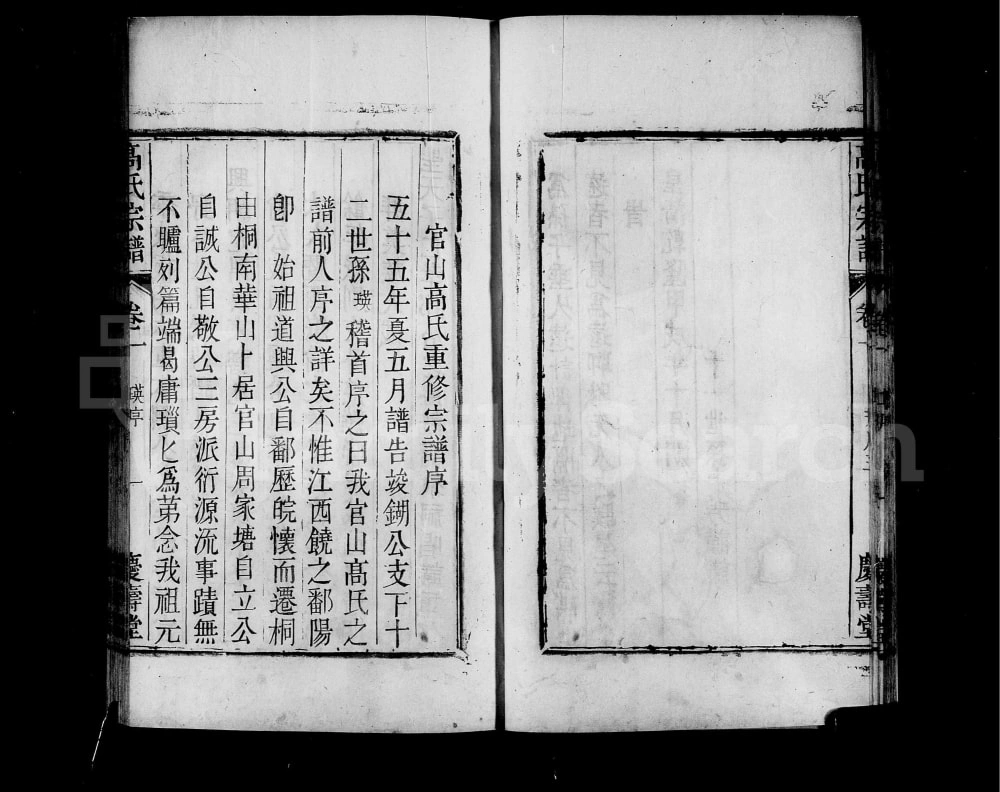 高氏宗譜
卷一
慶壽堂
官山高氏重修宗譜序
五十五年夏五月譜告竣鍘公支下十
二世孫瑛稽首序之曰我官山高氏之
譜前人序之詳矣不惟江西饒之鄱陽
卽始祖道興公自鄱歷皖懷而遷桐
由桐南華山卜居官山周家塘自立公
自誠公自敬公三房派衍源流事蹟無
不臚列篇端曷庸瑣匕爲第念我祖元
高氏宗譜
卷一
瑛序
一
慶壽堂